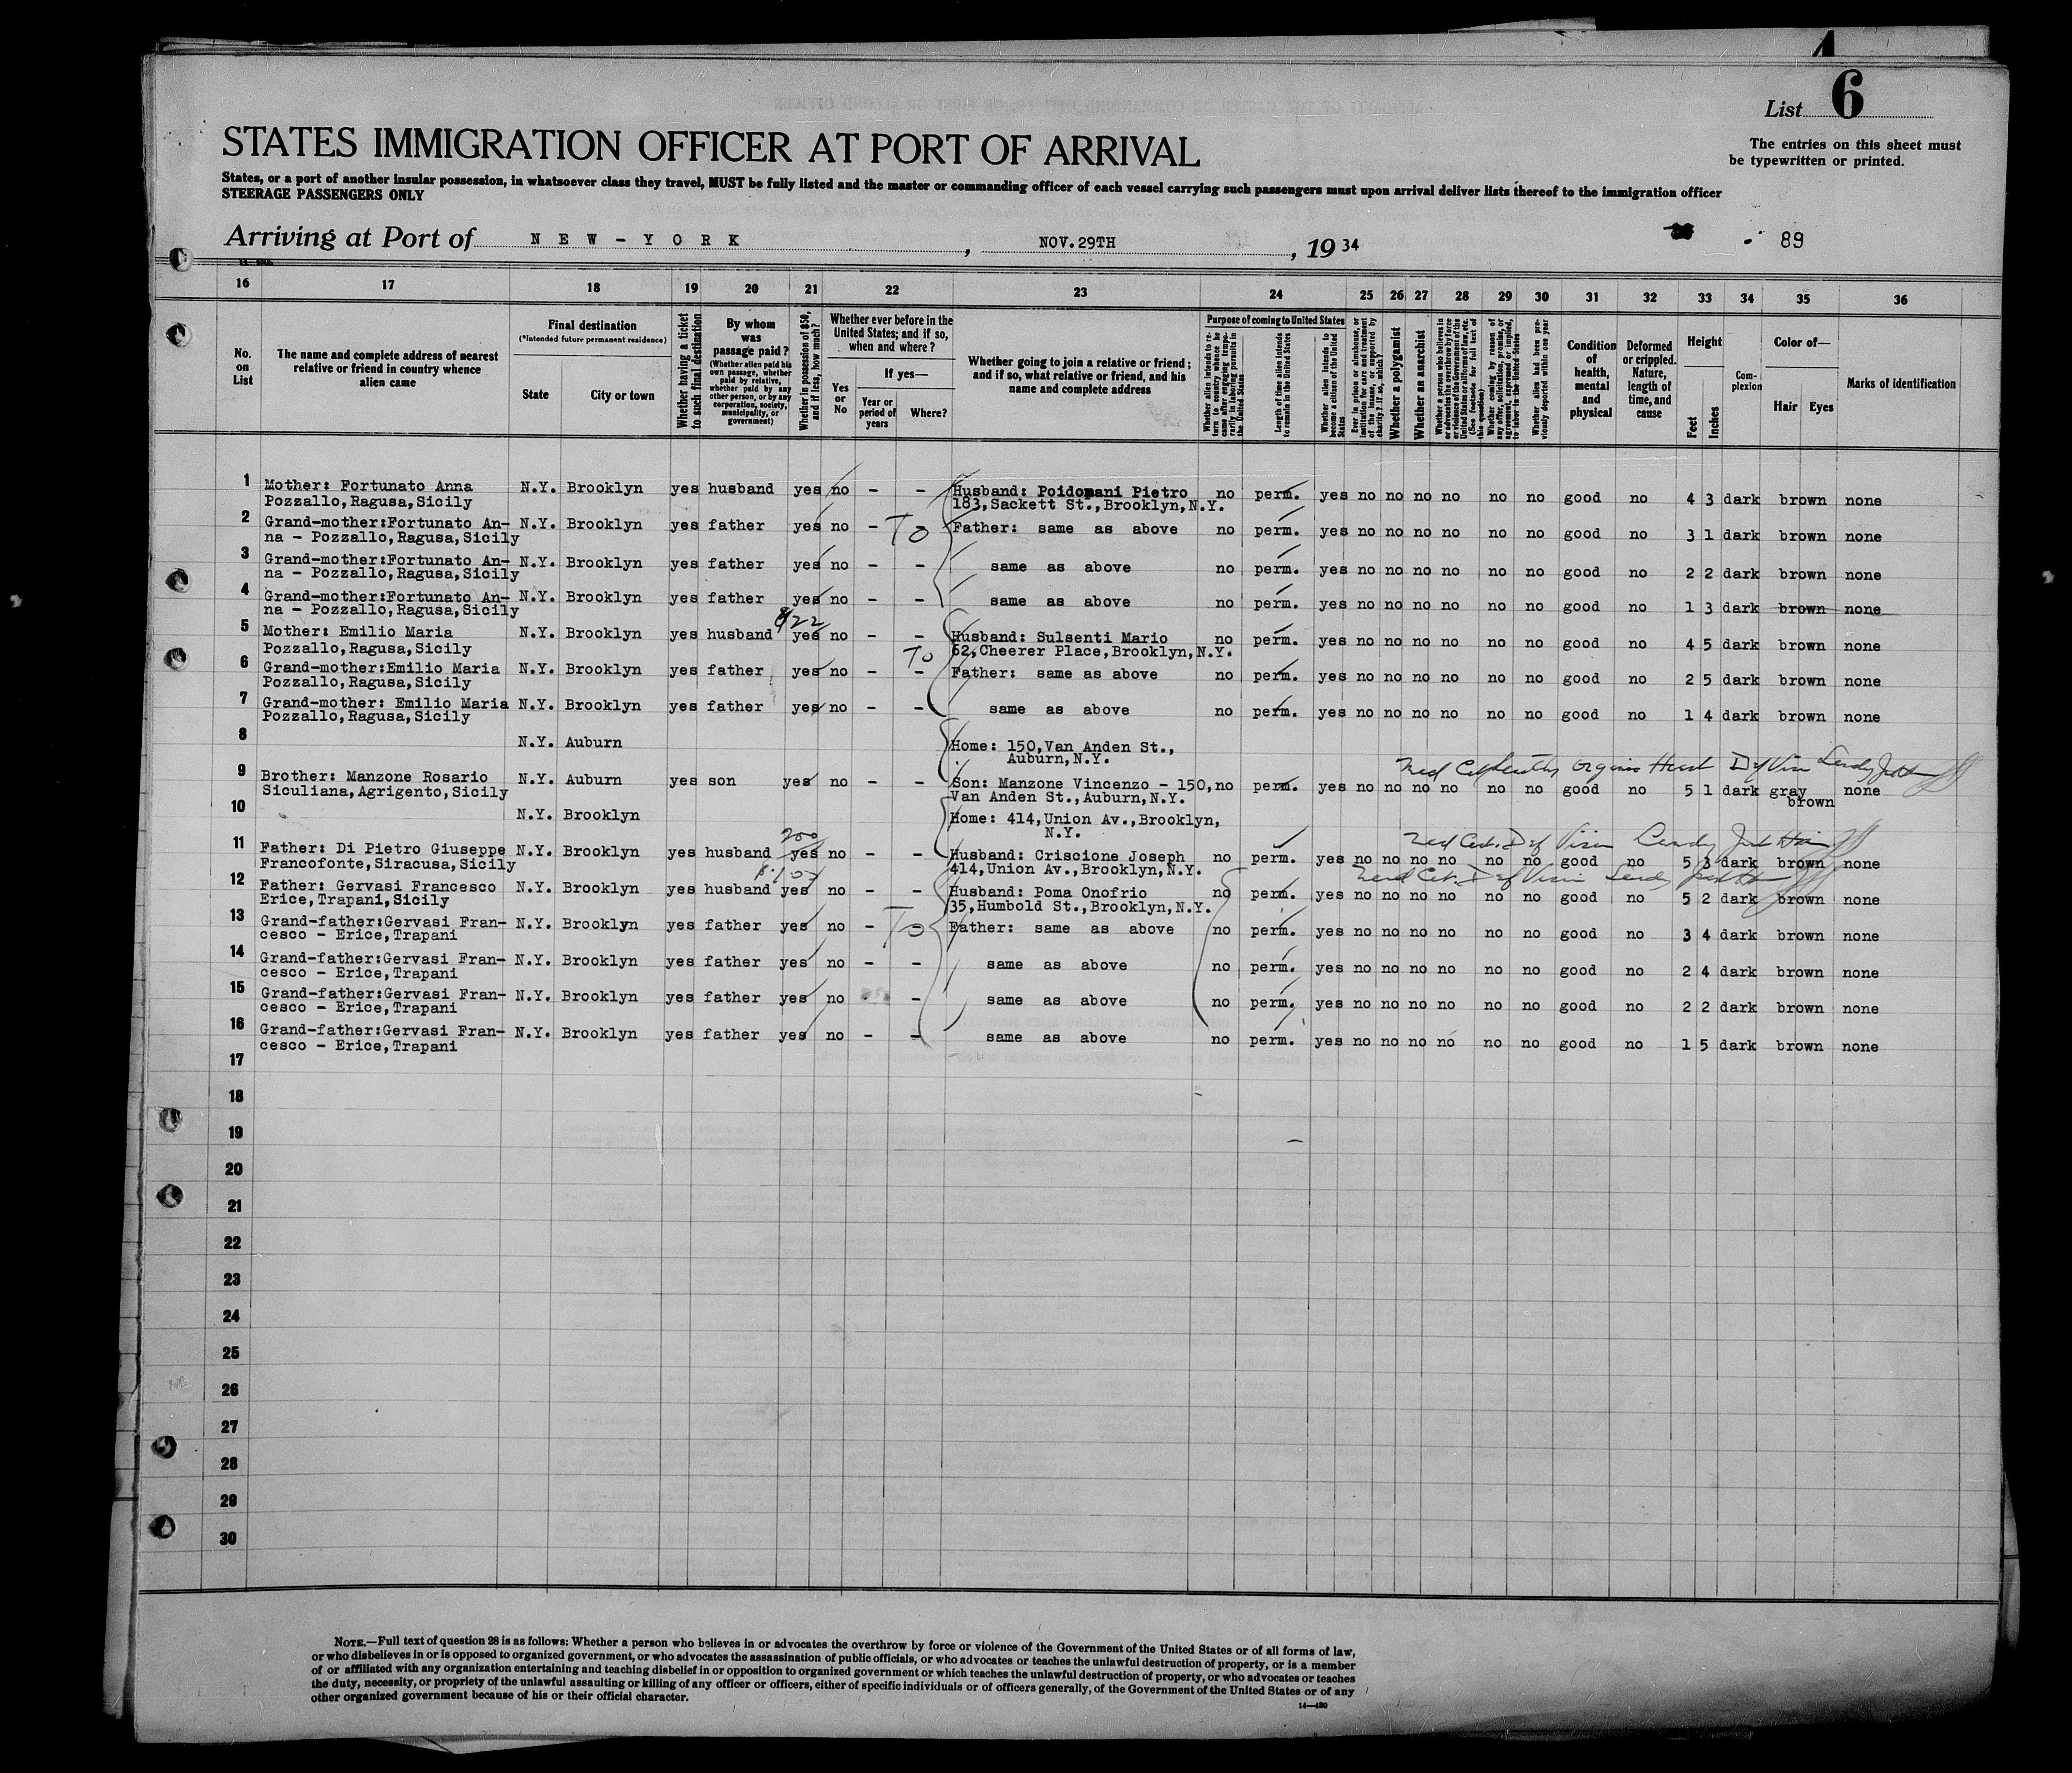 List 6
The entries on this sheet must
be typewritten or printed.
STATES IMMIGRATION OFFICER AT PORT OF ARRIVAL
States, or a port of another insular possession, in whatsoever class they travel, MUST be fully listed and the master or commanding officer of each vessel carrying such passengers must upon arrival deliver lists thereof to the immigration officer
STEERAGE PASSENGERS ONLY
Arriving at Port of NEW-YORK, NOV.29TH, 19 34
89
16 17 18 19 20 21 22 23 24 25 26 27 28 29 30 31 32 33 34 35 36
No. on List
The name and complete address of nearest relative or friend in country whence alien came
Final destination
(*Intended future permanent residence)
State
City or town
Whether having a ticket to such final destination
By whom was passage paid?
(Whether alien paid his own passage, whether paid by relative, whether paid by any other person, or by any corporation, society, municipality, or government)
Whether in possession of $50, and if less, how much?
Whether ever before in the United States; and if so, when and where?
Yes or No
If yes—
Year or period of years
Where?
Whether going to join a relative or friend; and if so, what relative or friend, and his name and complete address
Purpose of coming to United States
Whether alien intends to return to country whence he came after engaging temporarily in laboring pursuits in the United States
Length of time alien intends to remain in the United States
Whether alien intends to become a citizen of the United States
Ever in prison or almshouse, or institution for care and treatment of the insane, or supported by charity? If so, which?
Whether a polygamist
Whether an anarchist
Whether a person who believes in or advocates the overthrow by force or violence of the Government of the United States or all forms of law, etc. (See footnote for full text of this question)
Whether coming by reason of any offer, solicitation, promise, or agreement, expressed or implied, to labor in the United States
Whether alien had been previously deported within one year
Condition of health, mental and physical
Deformed or crippled. Nature, length of time, and cause
Height
Feet
Inches
Complexion
Color of—
Hair
Eyes
Marks of identification
1 Mother: Fortunato Anna N.Y. Brooklyn yes husband yes no - - Husband: Poidomani Pietro no perm. yes no no no no no no good no 4 3 dark brown none
Pozzallo,Ragusa,Sicily 183,Sackett St.,Brooklyn,N.Y.
2 Grand-mother:Fortunato An- N.Y. Brooklyn yes father yes no - To Father: same as above no perm. yes no no no no no no good no 3 1 dark brown none
na - Pozzallo,Ragusa,Sicily
3 Grand-mother:Fortunato An- N.Y. Brooklyn yes father yes no - - same as above no perm. yes no no no no no no good no 2 2 dark brown none
na - Pozzallo,Ragusa,Sicily
4 Grand-mother:Fortunato An- N.Y. Brooklyn yes father yes no - - same as above no perm. yes no no no no no no good no 1 3 dark brown none
na - Pozzallo,Ragusa,Sicily
5 Mother: Emilio Maria N.Y. Brooklyn yes husband yes no - - Husband: Sulsenti Mario no perm. yes no no no no no no good no 4 5 dark brown none
Pozzallo,Ragusa,Sicily To 62,Cheerer Place,Brooklyn,N.Y.
6 Grand-mother:Emilio Maria N.Y. Brooklyn yes father yes no - - Father: same as above no perm. yes no no no no no no good no 2 5 dark brown none
Pozzallo,Ragusa,Sicily
7 Grand-mother: Emilio Maria N.Y. Brooklyn yes father yes no - - same as above no perm. yes no no no no no no good no 1 4 dark brown none
Pozzallo,Ragusa,Sicily
8 N.Y. Auburn Home: 150,Van Anden St.,
Auburn,N.Y.
9 Brother: Manzone Rosario N.Y. Auburn yes son yes no - - Son: Manzone Vincenzo - 150, no perm. yes no no no no no no good no 5 1 dark gray brown none
Siculiana,Agrigento,Sicily Van Anden St.,Auburn,N.Y.
10 N.Y. Brooklyn Home: 414,Union Av.,Brooklyn,
N.Y.
200
11 Father: Di Pietro Giuseppe N.Y. Brooklyn yes husband yes no - - Husband: Criscione Joseph no perm. yes no no no no no no good no 5 3 dark brown none
Francofonte,Siracusa,Sicily 414,Union Av.,Brooklyn,N.Y.
12 Father: Gervasi Francesco N.Y. Brooklyn yes husband yes no - - Husband: Poma Onofrio no perm. yes no no no no no no good no 5 2 dark brown none
Erice,Trapani,Sicily 35,Humbold St.,Brooklyn,N.Y.
13 Grand-father:Gervasi Fran- N.Y. Brooklyn yes father yes no - To Father: same as above no perm. yes no no no no no no good no 3 4 dark brown none
cesco - Erice,Trapani
14 Grand-father:Gervasi Fran- N.Y. Brooklyn yes father yes no - - same as above no perm. yes no no no no no no good no 2 4 dark brown none
cesco - Erice,Trapani
15 Grand-father:Gervasi Fran- N.Y. Brooklyn yes father yes no - same as above no perm. yes no no no no no no good no 2 2 dark brown none
cesco - Erice,Trapani
16 Grand-father:Gervasi Fran- N.Y. Brooklyn yes father yes no - - same as above no perm. yes no no no no no no good no 1 5 dark brown none
cesco - Erice,Trapani
17
18
19
20
21
22
23
24
25
26
27
28
29
30
NOTE.—Full text of question 28 is as follows: Whether a person who believes in or advocates the overthrow by force or violence of the Government of the United States or of all forms of law,
or who disbelieves in or is opposed to organized government, or who advocates the assassination of public officials, or who advocates or teaches the unlawful destruction of property, or is a member
of or affiliated with any organization entertaining and teaching disbelief in or opposition to organized government or which teaches the unlawful destruction of property, or who advocates or teaches
the duty, necessity, or propriety of the unlawful assaulting or killing of any officer or officers, either of specific individuals or of officers generally, of the Government of the United States or of any
other organized government because of his or their official character.
14—480